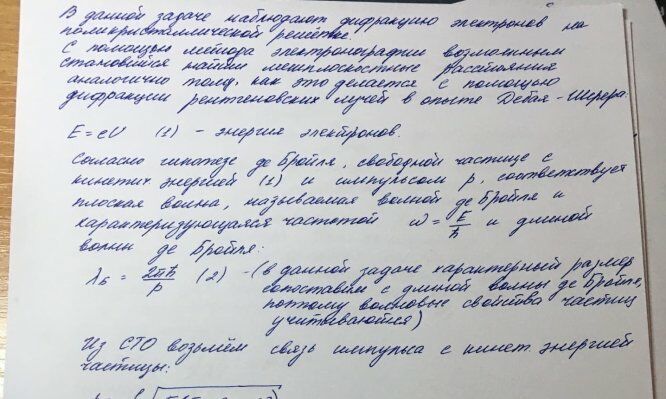 В данной задаче наблюдают дифракцию электронов на
поликристаллической решетке.
С помощью метода электронографии возможным
становится найти межплоскостные расстояния
аналогично тому, как это делается с помощью
дифракции рентгеновских лучей в опыте Дебая-Шерера:
E = eU (1) - энергия электронов.
Согласно гипотезе де Бройля, свободной частице с
кинетич. энергией (1) и импульсом p, соответствует
плоская волна, называемая волной де Бройля и
характеризующаяся частотой ω = E/ħ и длиной
волны де Бройля:
λ_Б = 2πħ/p (2) - (в данной задаче характерный размер
сопоставим с длиной волны де Бройля,
поэтому волновые свойства частиц
учитываются)
Из СТО возьмём связь импульса с кинет. энергией
частицы: